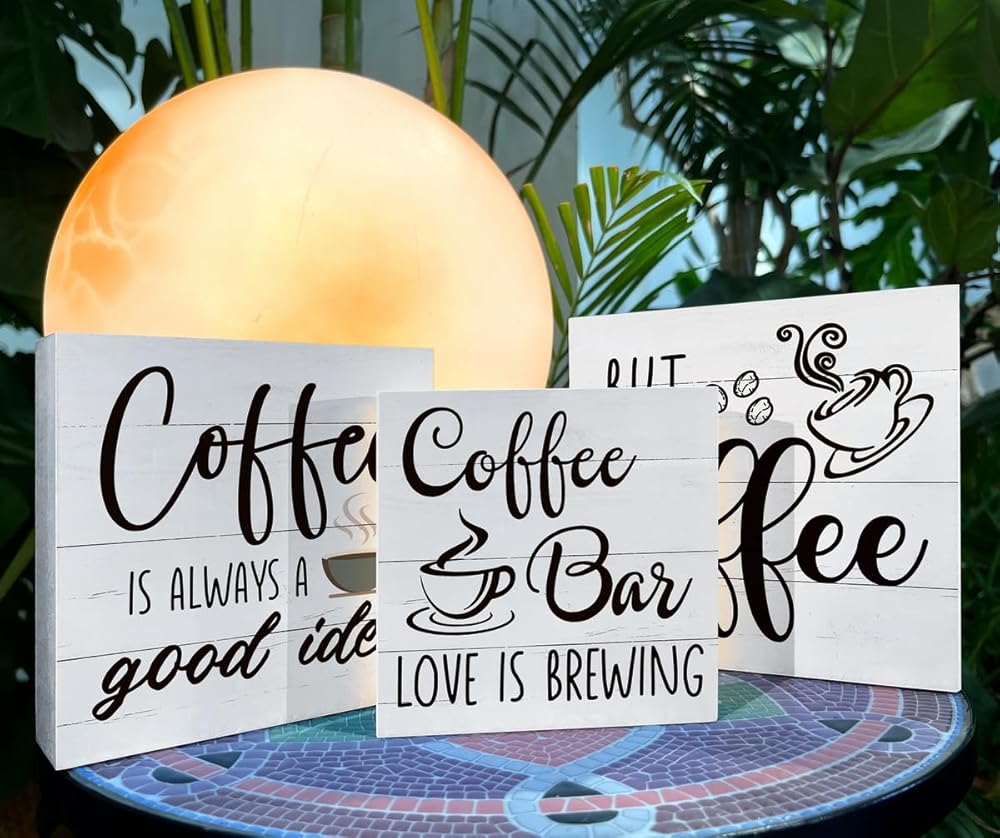 Coffee
IS ALWAYS A
good ide
Coffee
Bar
LOVE IS BREWING
BUT
ffee